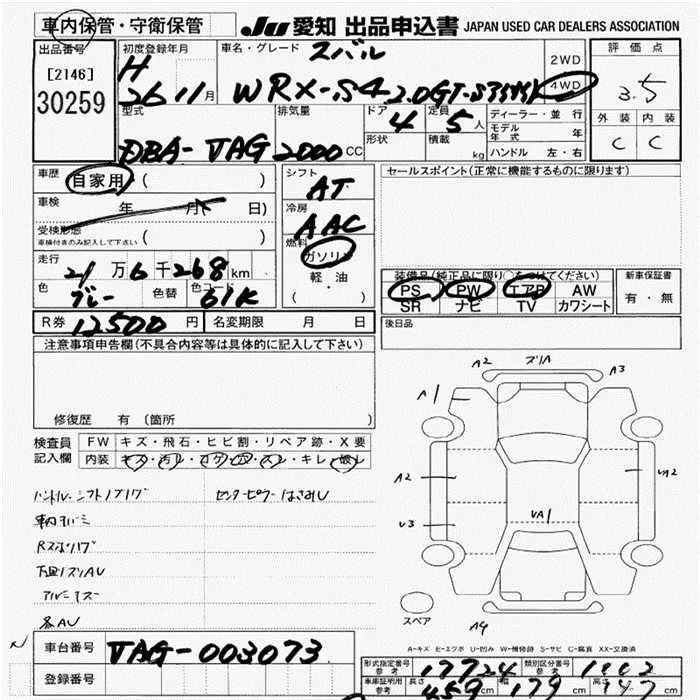 車内保管・守衛保管 JU 愛知 出品申込書 JAPAN USED CAR DEALERS ASSOCIATION
出品番号 初度登録年月 車名・グレード スバル 2WD 評価点
[2146] H 4WD
30259 26 11月 WRX-S4 2.0GT-S 3.5
型式 排気量 ドア 定員 ディーラー・並行 外装 内装
4 5人 モデル年式 年
形状 積載 kg ハンドル 左・右 C C
DBA-VAG 2000CC
車歴 自家用 ( ) シフト AT セールスポイント(正常に機能するものに限ります)
車検 年 月 日) 冷房 AAC
受検形態 ( )
車検付きのみ記入して下さい
燃料 ガソリン
走行 21万6千268km 軽・油
装備品(純正品に限り○をつけてください) 新車保証書
色 グレー 色替 色コード 61K ( )
PS PW エアB AW 有・無
SR ナビ TV カワシート
R券 12500円 名変期限 月 日 後日品
注意事項申告欄(不具合内容等は具体的に記入して下さい)
修復歴 有 (箇所 )
検査員 FW キズ・飛石・ヒビ割・リペア跡・X要
記入欄 内装 キズ・汚レ・コゲ・穴・スレ・キレ・破レ
A2 ズリA A3
A1
A2 VA2
U3 VA1
スペア
A4
A-キズ E-エクボ U-凹み W-補修跡 S-サビ C-腐食 XX-交換済
ハンドル・シフトノブハゲ
車内キバミ
各AU
車台番号 VAG-003073
登録番号
形式指定番号 参考 17724 類別区分番号 参考
車庫証明用 参考 長さ 459cm 幅 179cm 高さ 147cm